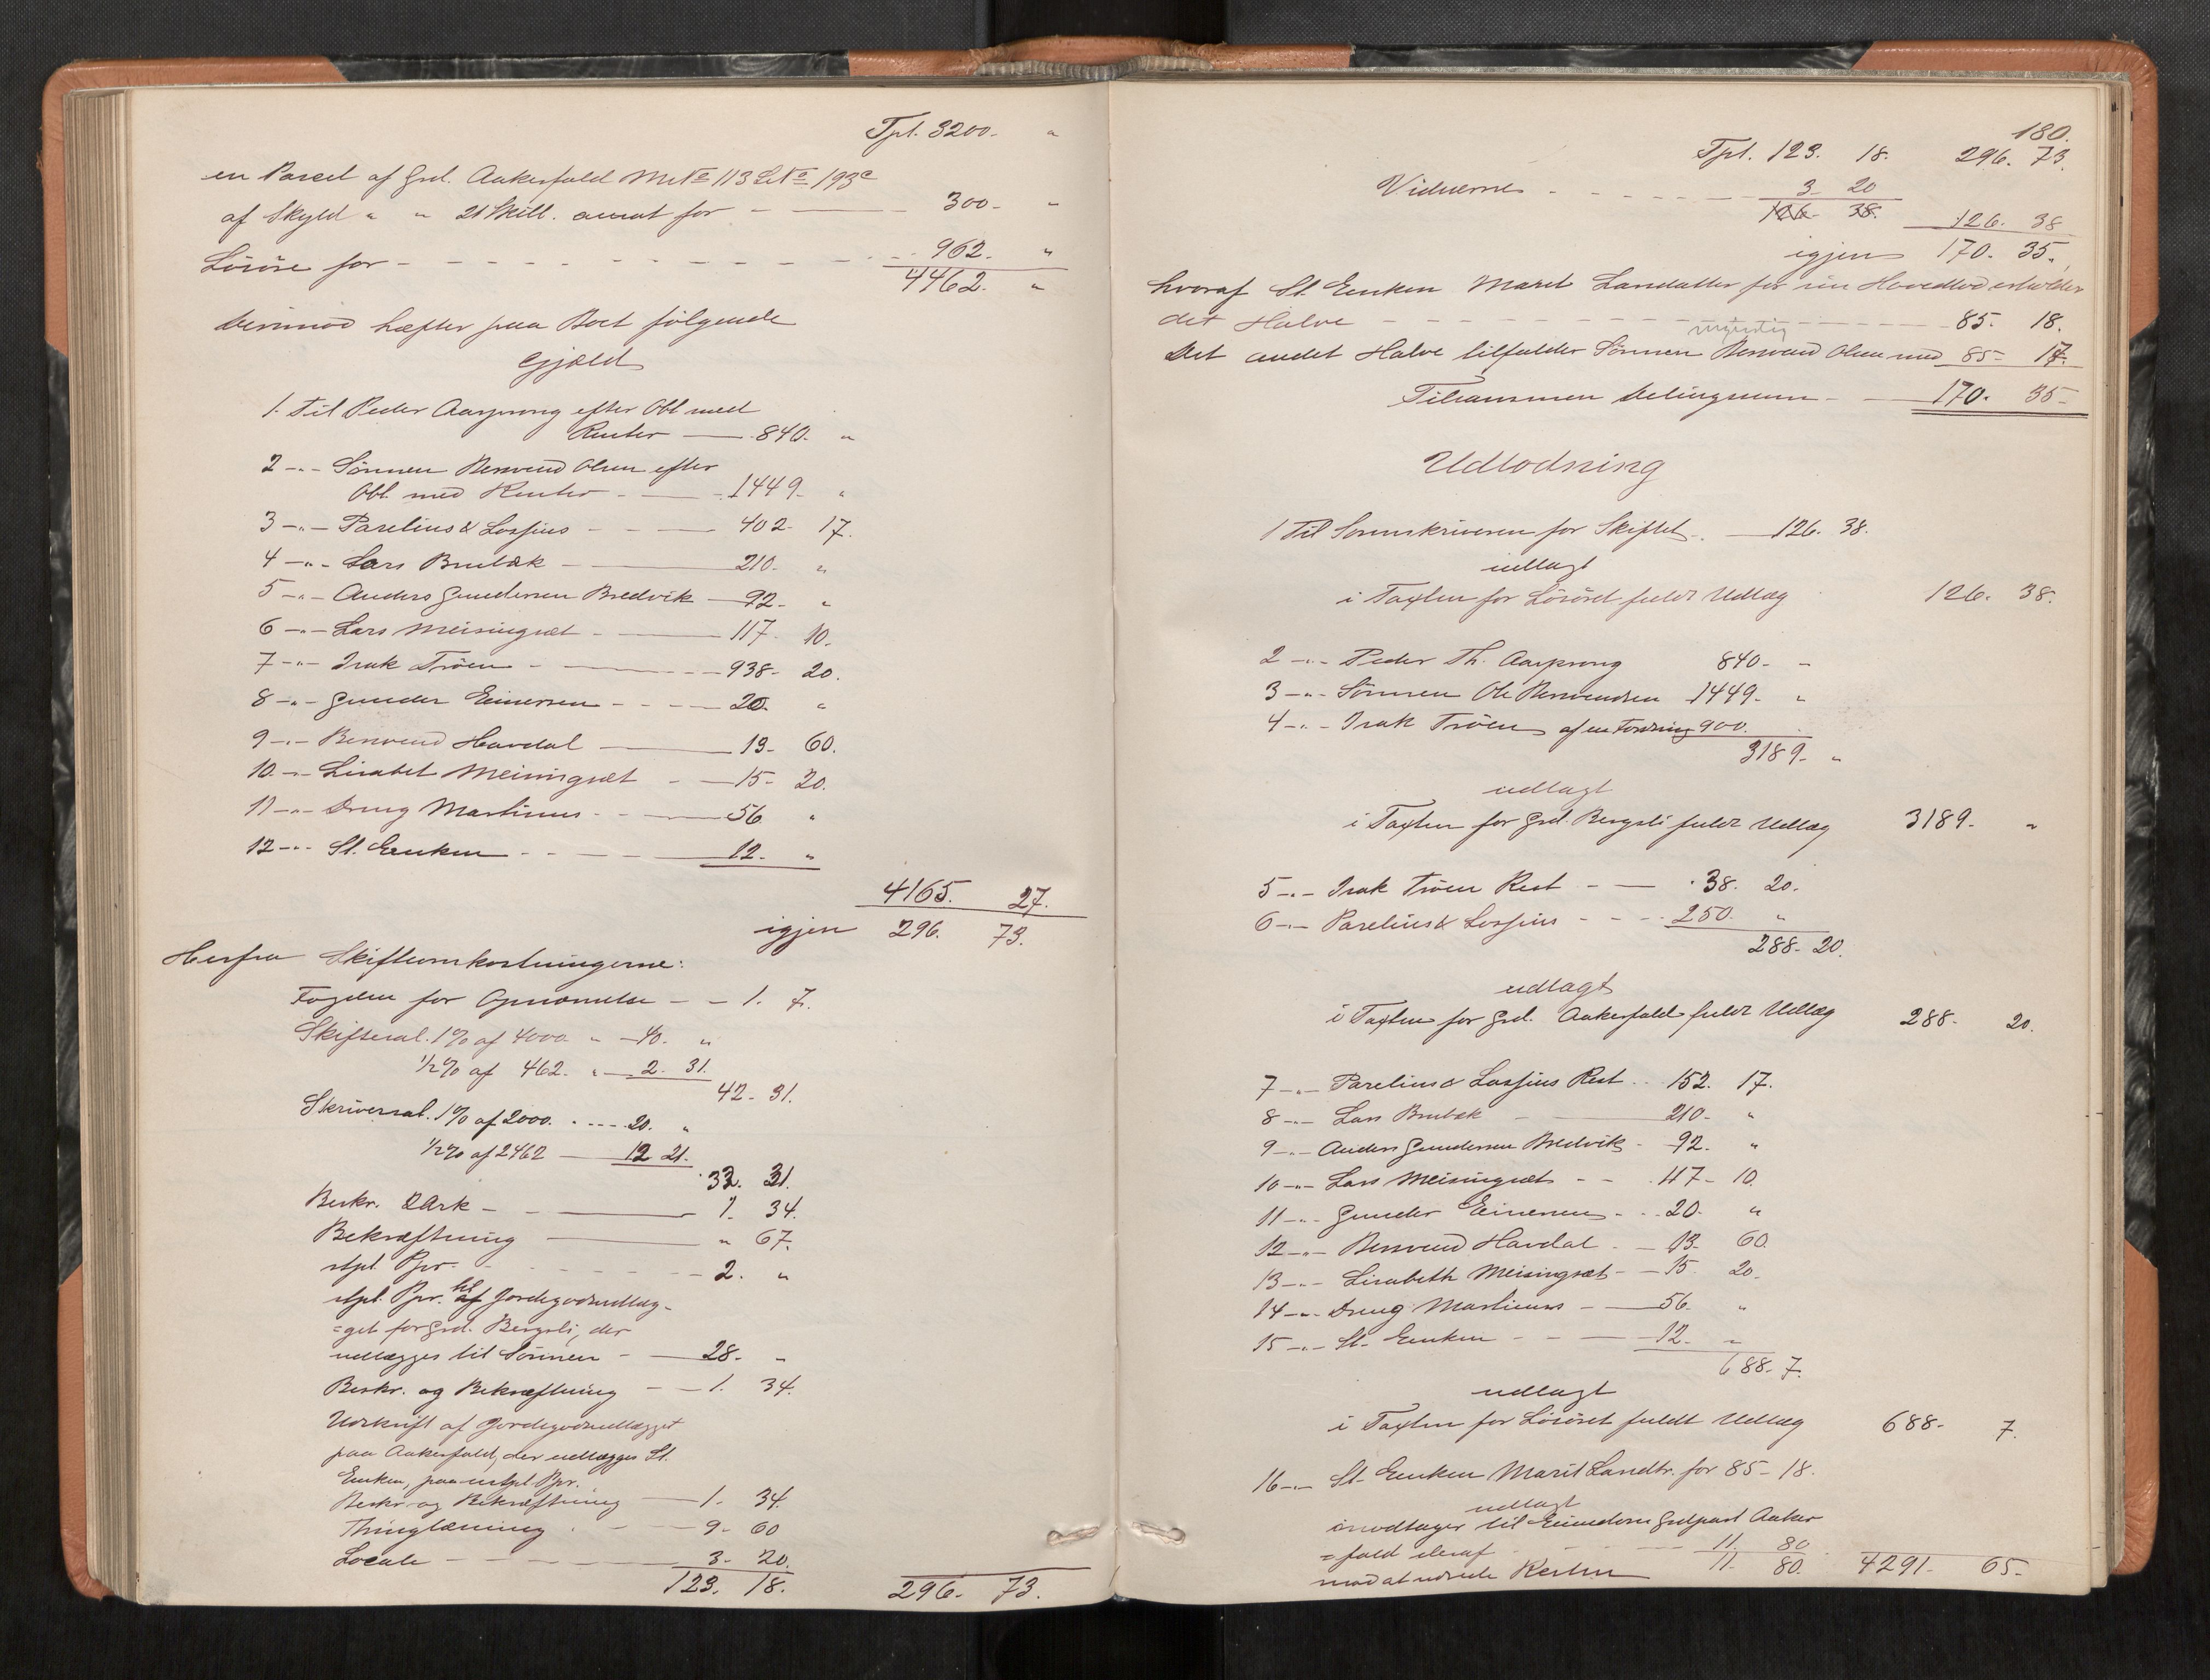 Tpt. 3200. "
en Parcel af Grd. Aakerfald M.No 113 L.No 193c
af Skyld " " 21 Skill. ansat for — 300- "
Løsøre for - - - 962. "
4462. "
Derimod hæfter paa Boet følgende
Gjæld
1. Til Peder Aasprong efter Obl. med
Renter — 840. "
2 -"- Sønnen Benvend Olsen efter
Obl. med Renter — 1449. "
3 -"- Parelius & Lossius — 402- 17.
4 -"- Lars Brubæk — 210. "
5 -"- Anders Gundersen Bredvik — 92- "
6 -"- Lars Meisingset — 117- 10.
7 -"- Isak Trøen — 938- 20.
8 -"- Gunder Einersen — 20. "
9 -"- Benvend Havdal — 13- 60.
10 -"- Lisabet Meisingset — 15- 20.
11 -"- Dreng Martinus — 56 "
12 -"- St. Enken — 12. "
4165. 27.
igjen 296. 73.
Herfra Skifteomkostningerne:
Fogden for Opnævnelse — 1. 7.
Skiftesal. 1% af 4000. " — 40. "
1/2% af 462. " — 2. 31.
42- 31.
Skriversal. 1% af 2000. - - - 20. "
1/2% af 2462 — 12 21.
32. 31.
Beskr. 2 Ark — 1. 34.
Bekræftning — " 67.
stpl. Ppr. - - - 2. "
stpl. Ppr. til Jordegodsudlæg-
=get for Grd. Bergsli, der
udlægges til Sønnen — 28- "
Beskr. og Bekræftning — 1. 34.
Udskrift af Jordegodsudlægget
paa Aakerfald, der udlægges St.
Enken, paa ustpl. Ppr.
Beskr. og Bekræftning — 1. 34.
Thinglæsning — 9. 60
Locale — 3- 20.
123. 18. 296. 73.
180.
Tpt. 123. 18. 296. 73.
Vidnerne - - - 3 20
126- 38. 126. 38
igjen 170. 35.
hvoraf St. Enken Marit Larsdatter for sin Hovedlod erholder
det Halve - - - 85. 18.
myndig
Det andet Halve tilfalder Sønnen Benvend Olsen med 85- 17.
Tilsammen Delingssum — 170. 35-
Udlodning
1 Til Sorenskriveren for Skiftet - — 126. 38.
udlagt
i Taxten for Løsøret fuldt Udlæg 126. 38.
2 -"- Peder Th. Aasprong 840- -
3 -"- Sønnen Ole Benvendsen 1449- "
4 -"- Isak Trøen af en Fordring 900.
3189- "
udlagt
i Taxten for Grd. Bergsli fuldt Udlæg 3189- "
5 -"- Isak Trøen Rest — 38. 20.
6 -"- Parelius & Lossius - - - 250. "
288- 20.
udlagt
i Taxten for Grd. Aakerfald fuldt Udlæg 288- 20.
7 -"- Parelius & Lossius Rest - - 152. 17.
8 -"- Lars Brubæk — 210- "
9 -"- Anders Gundersen Bredvik - 92. "
10 -"- Lars Meisingset - - 117- 10.
11 -"- Gunder Einersen - - 20. "
12 -"- Benvend Havdal - 13- 60.
13 -"- Lisabeth Meisingset - 15. 20.
14 -"- Dreng Martinus — 56. "
15 -"- St. Enken — 12. "
688- 7.
udlagt
i Taxten for Løsøret fuldt Udlæg 688- 7.
16 -"- St. Enken Marit Larsdtr. for 85- 18.
udlagt
modtager til Eiendom Grdpart Aaker
=fald deraf - - - 11. 80
mod at udrede Resten 11. 80. 4291. 65-